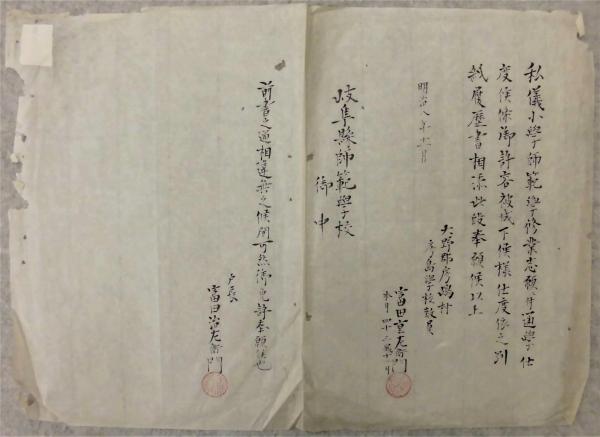 私儀小學師範學修業志願ニ付通學仕
度候条御許容被成下候樣仕度依之別
紙履歴書相添此段奉願候以上
明治八年 月
大野郡 村
學校教員
富田重左衛門
岐阜縣師範學校
御中
前書之通相違無之候間可然御免許奉願候也
戸長
富田治左衛門